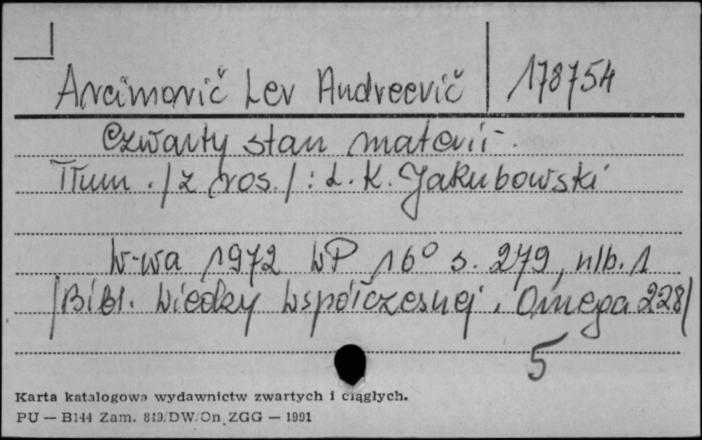 Arcimovič Lev Andreevič 178754
Czwarty stan materii.
Tłum. /z ros./: L. K. Jakubowski
W-wa 1972 WP 16° s. 279, nlb. 1
/Bibl. Wiedzy Współczesnej. Omega 228/
5
Karta katalogowa wydawnictw zwartych i ciągłych.
PU — B144 Zam. 849/DW/On ZGG — 1991